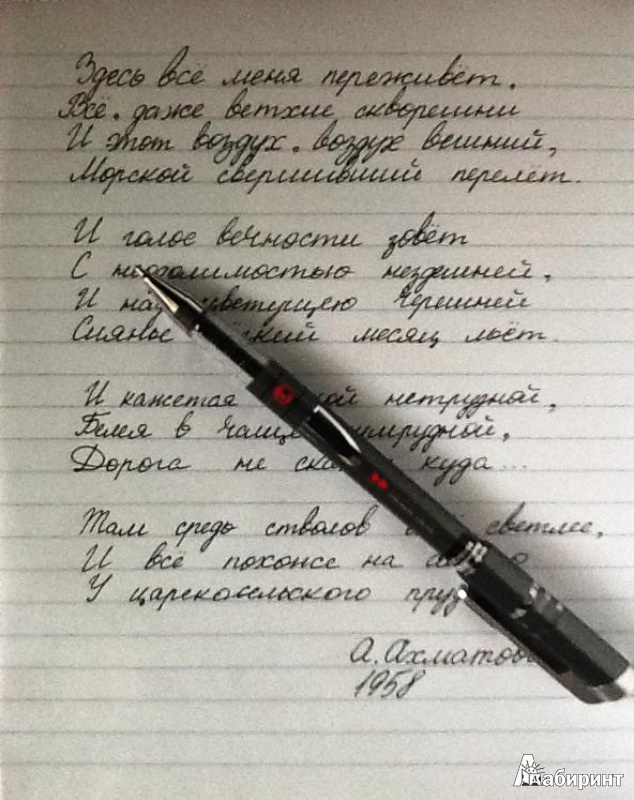 Здесь всё меня переживёт.
Всё. даже ветхие скворешни
И этот воздух. воздух вешний,
Морской свершивший перелёт.
И голос вечности зовёт
С неодолимостью нездешней,
И над цветущею черешней
Сиянье лёгкий месяц льёт.
И кажется нетрудной,
Белея в чаще изумрудной,
Дорога не скажу куда...
Там средь стволов светлее,
И всё похоже на
У царскосельского пруда
А. Ахматова
1958
Лабиринт